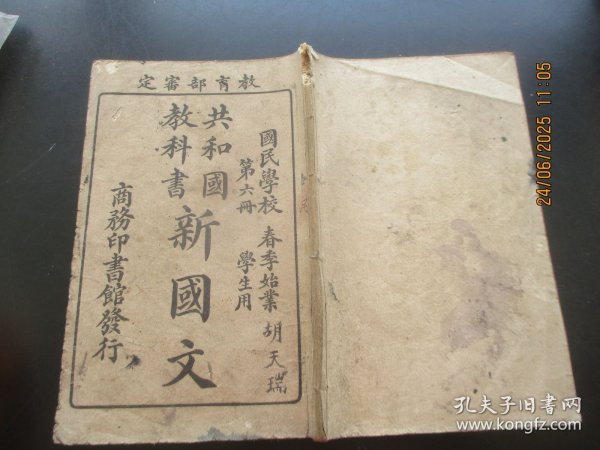 教育部審定
國民學校 春季始業 胡天瑞
第六冊 學生用
共和國
教科書
新國文
商務印書館發行
24/06/2025 11:05
孔夫子旧书网
www.kongfz.com